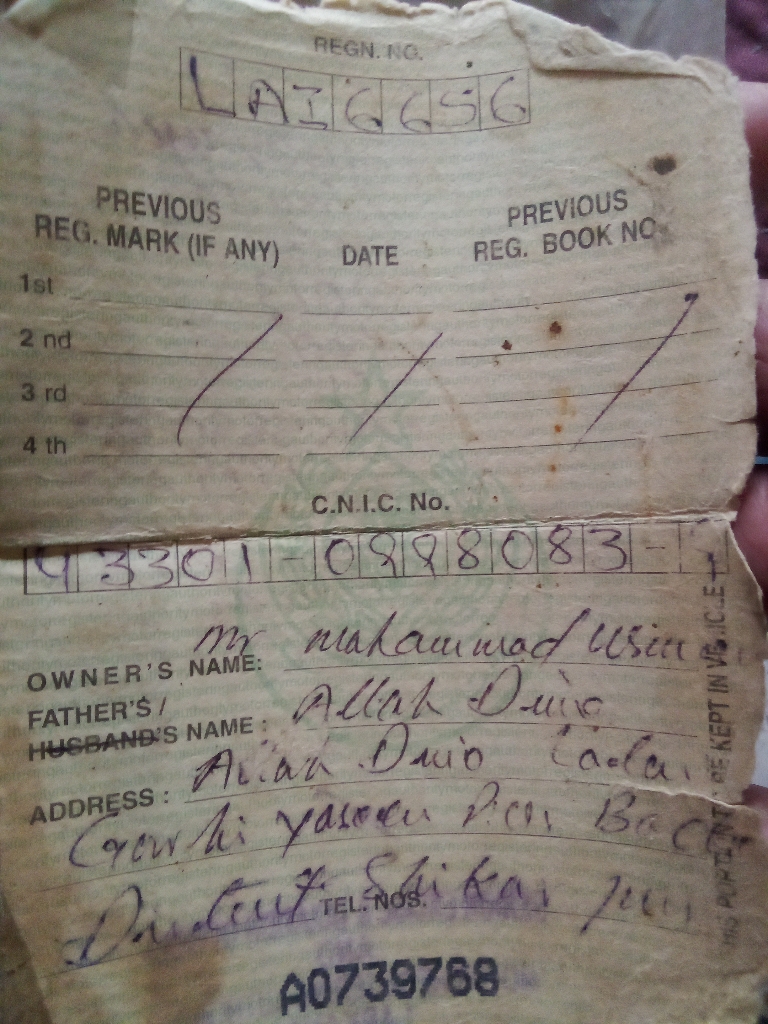 REGN. NO.
LAI 6656
PREVIOUS REG. MARK (IF ANY)
DATE
PREVIOUS REG. BOOK NO
1st
2 nd
3 rd
4 th
C.N.I.C. No.
43301-0888083-
OWNER'S NAME: Mr Muhammad
FATHER'S /
HUSBAND'S NAME : Allah Dino
ADDRESS : Allah Dino
Garhi Yaseen
Shikar pur
TEL. NOS.
A0739768
BE KEPT IN VEHICLE